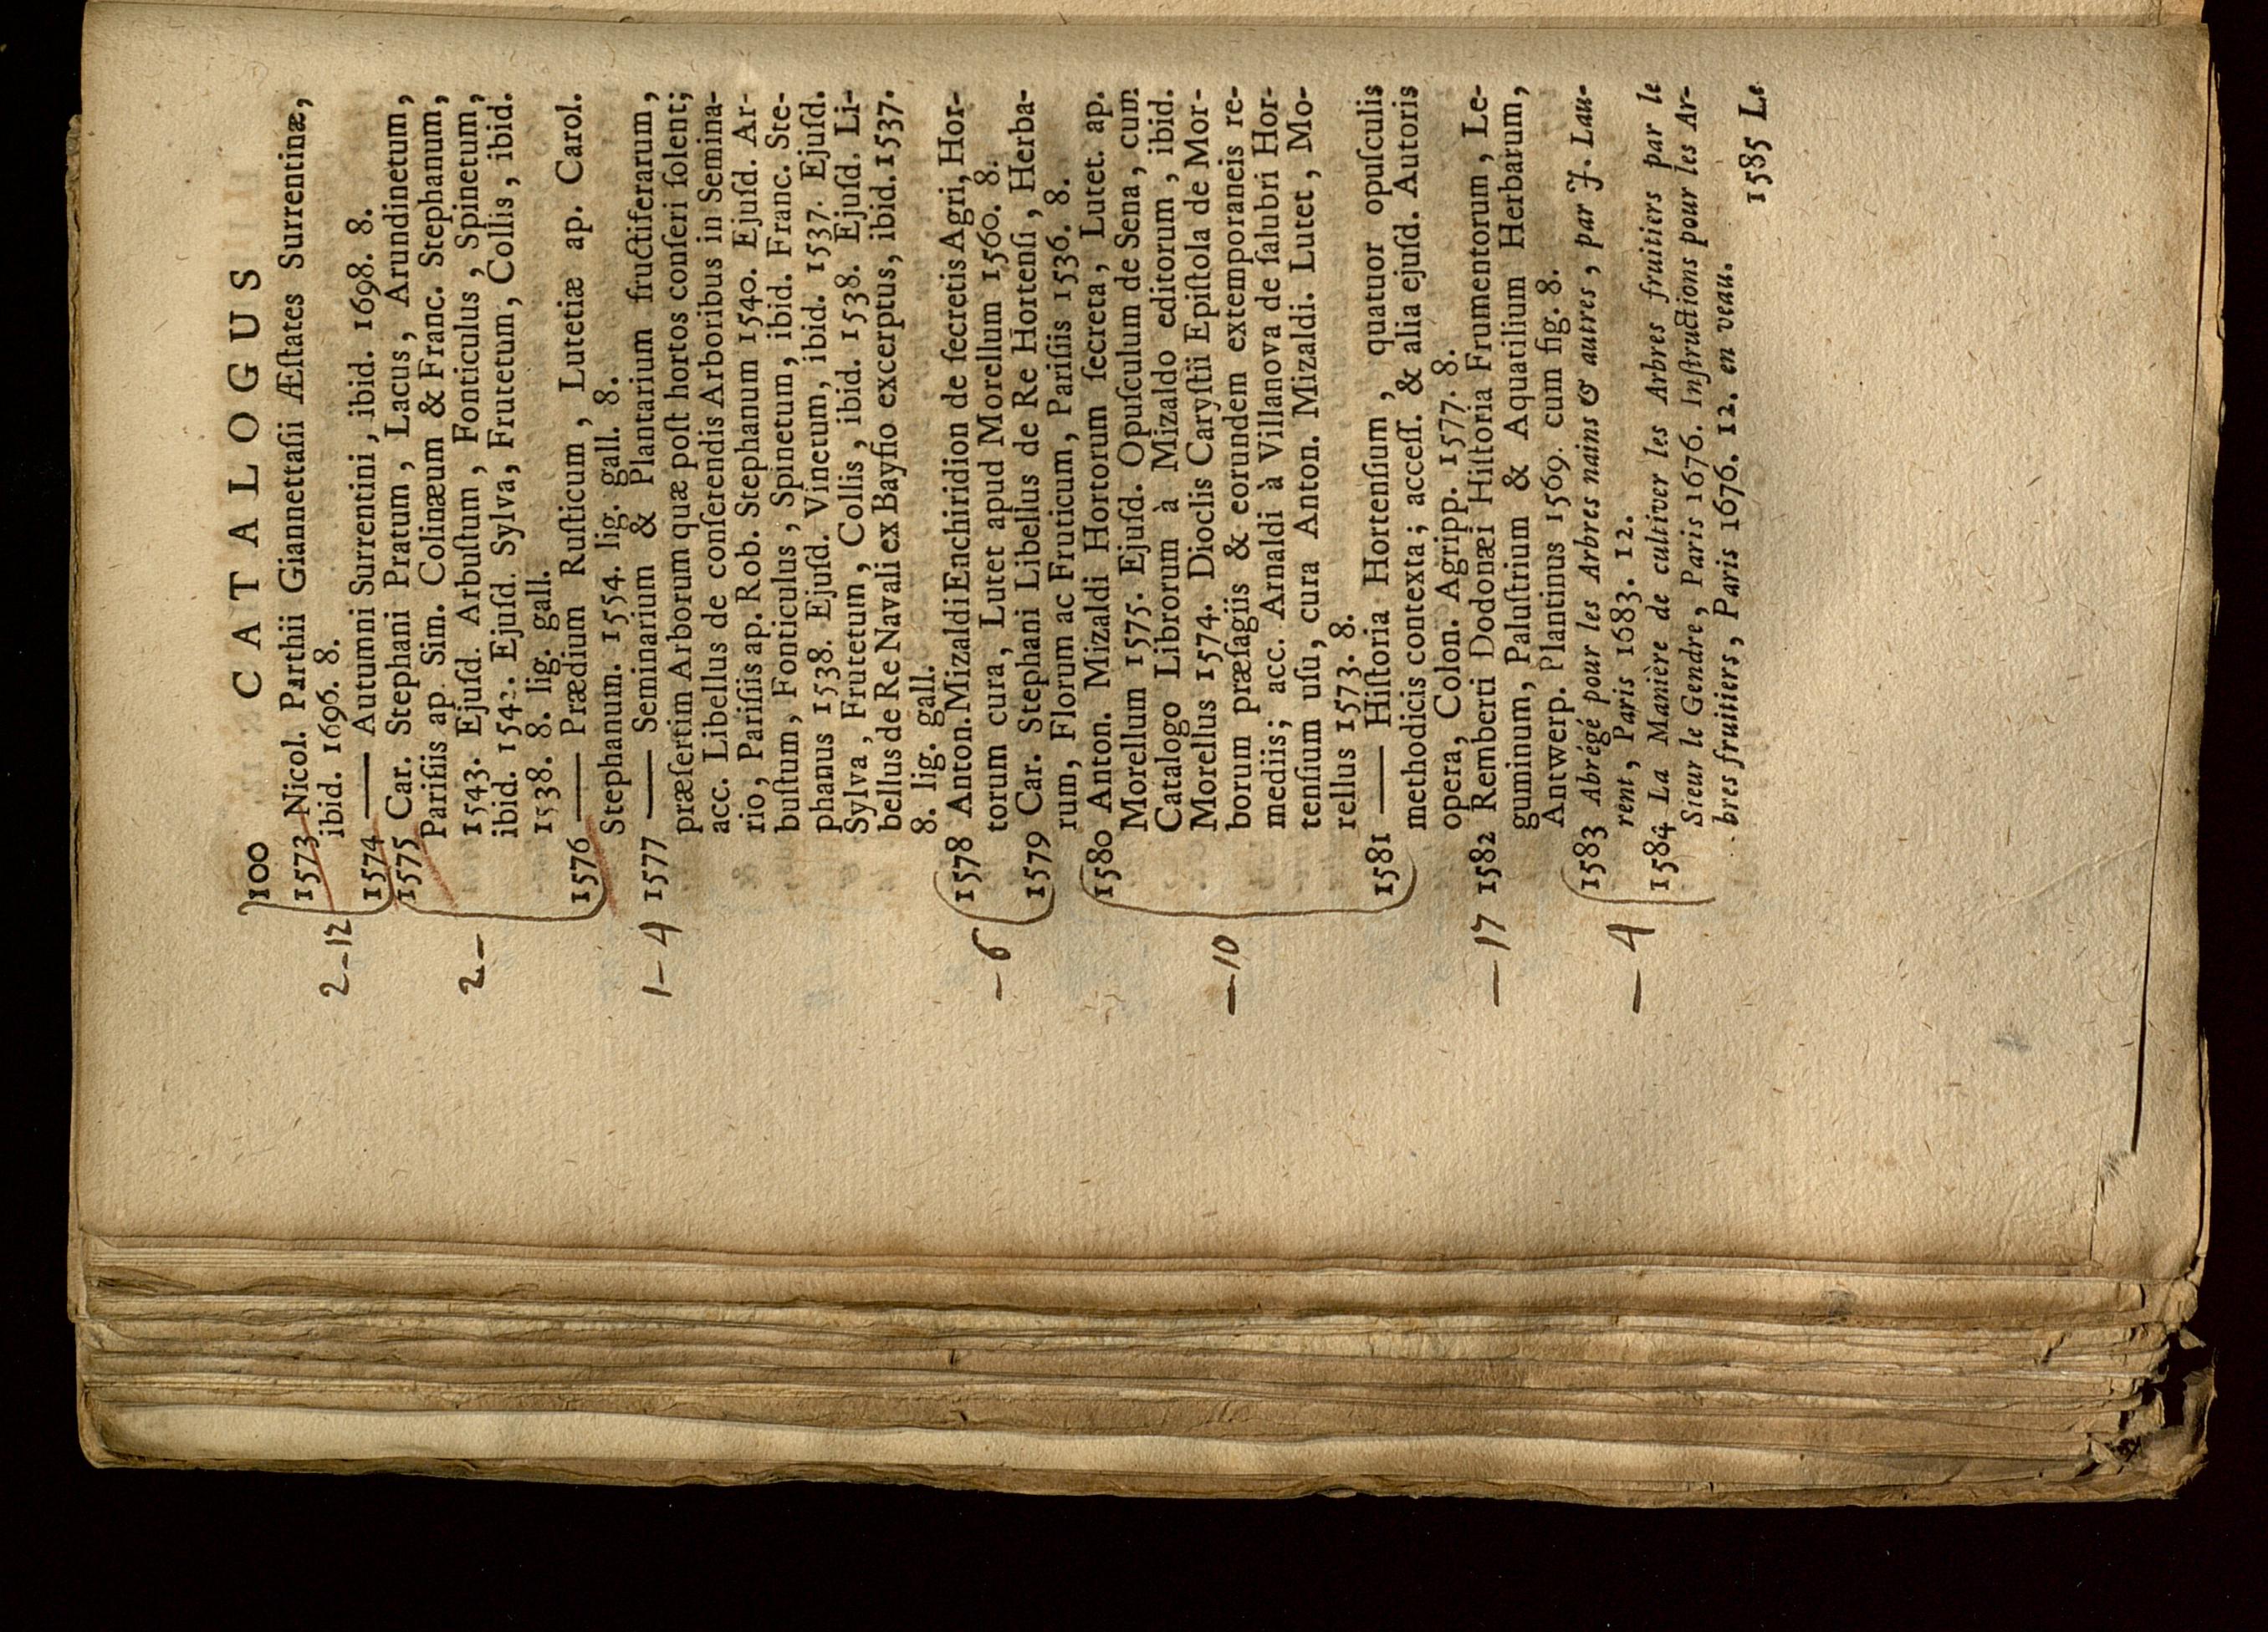 100 CATALOGUS
1573 Nicol. Parthii Giannettaſii Æſtates Surrentinæ,
ibid. 1696. 8.
2-12
1574 —— Autumni Surrentini, ibid. 1698. 8.
1575 Car. Stephani Pratum, Lacus, Arundinetum,
Pariſiis ap. Sim. Colinæum & Franc. Stephanum,
1543. Ejuſd. Arbuſtum, Fonticulus, Spinetum,
2-
ibid. 1542. Ejuſd. Sylva, Frutetum, Collis, ibid.
1538. 8. lig. gall.
1576 —— Prædium Ruſticum, Lutetiæ ap. Carol.
Stephanum. 1554. lig. gall. 8.
1-4 1577 —— Seminarium & Plantarium fructiferarum,
præſertim Arborum quæ poſt hortos conſeri ſolent;
acc. Libellus de conſerendis Arboribus in Semina-
rio, Pariſiis ap. Rob. Stephanum 1540. Ejuſd. Ar-
buſtum, Fonticulus, Spinetum, ibid. Franc. Ste-
phanus 1538. Ejuſd. Vinetum, ibid. 1537. Ejuſd.
Sylva, Frutetum, Collis, ibid. 1538. Ejuſd. Li-
bellus de Re Navali ex Bayfio excerptus, ibid. 1537.
8. lig. gall.
1578 Anton. Mizaldi Enchiridion de ſecretis Agri, Hor-
torum cura, Lutet apud Morellum 1560. 8.
-6
1579 Car. Stephani Libellus de Re Hortenſi, Herba-
rum, Florum ac Fruticum, Pariſiis 1536. 8.
1580 Anton. Mizaldi Hortorum ſecreta, Lutet. ap.
Morellum 1575. Ejuſd. Opuſculum de Sena, cum
Catalogo Librorum à Mizaldo editorum, ibid.
Morellus 1574. Dioclis Caryſtii Epiſtola de Mor-
-10
borum præſagiis & eorundem extemporaneis re-
mediis; acc. Arnaldi à Villanova de ſalubri Hor-
tenſium uſu, cura Anton. Mizaldi. Lutet, Mo-
rellus 1573. 8.
1581 —— Hiſtoria Hortenſium, quatuor opuſculis
methodicis contexta; acceſſ. & alia ejuſd. Autoris
opera, Colon. Agripp. 1577. 8.
-17 1582 Remberti Dodonæi Hiſtoria Frumentorum, Le-
guminum, Paluſtrium & Aquatilium Herbarum,
Antwerp. Plantinus 1569. cum fig. 8.
1583 Abrégé pour les Arbres nains & autres, par J. Lau-
rent, Paris 1683. 12.
-4
1584 La Manière de cultiver les Arbres fruitiers par le
Sieur le Gendre, Paris 1676. Inſtructions pour les Ar-
bres fruitiers, Paris 1676. 12. en veau.
1585 Le